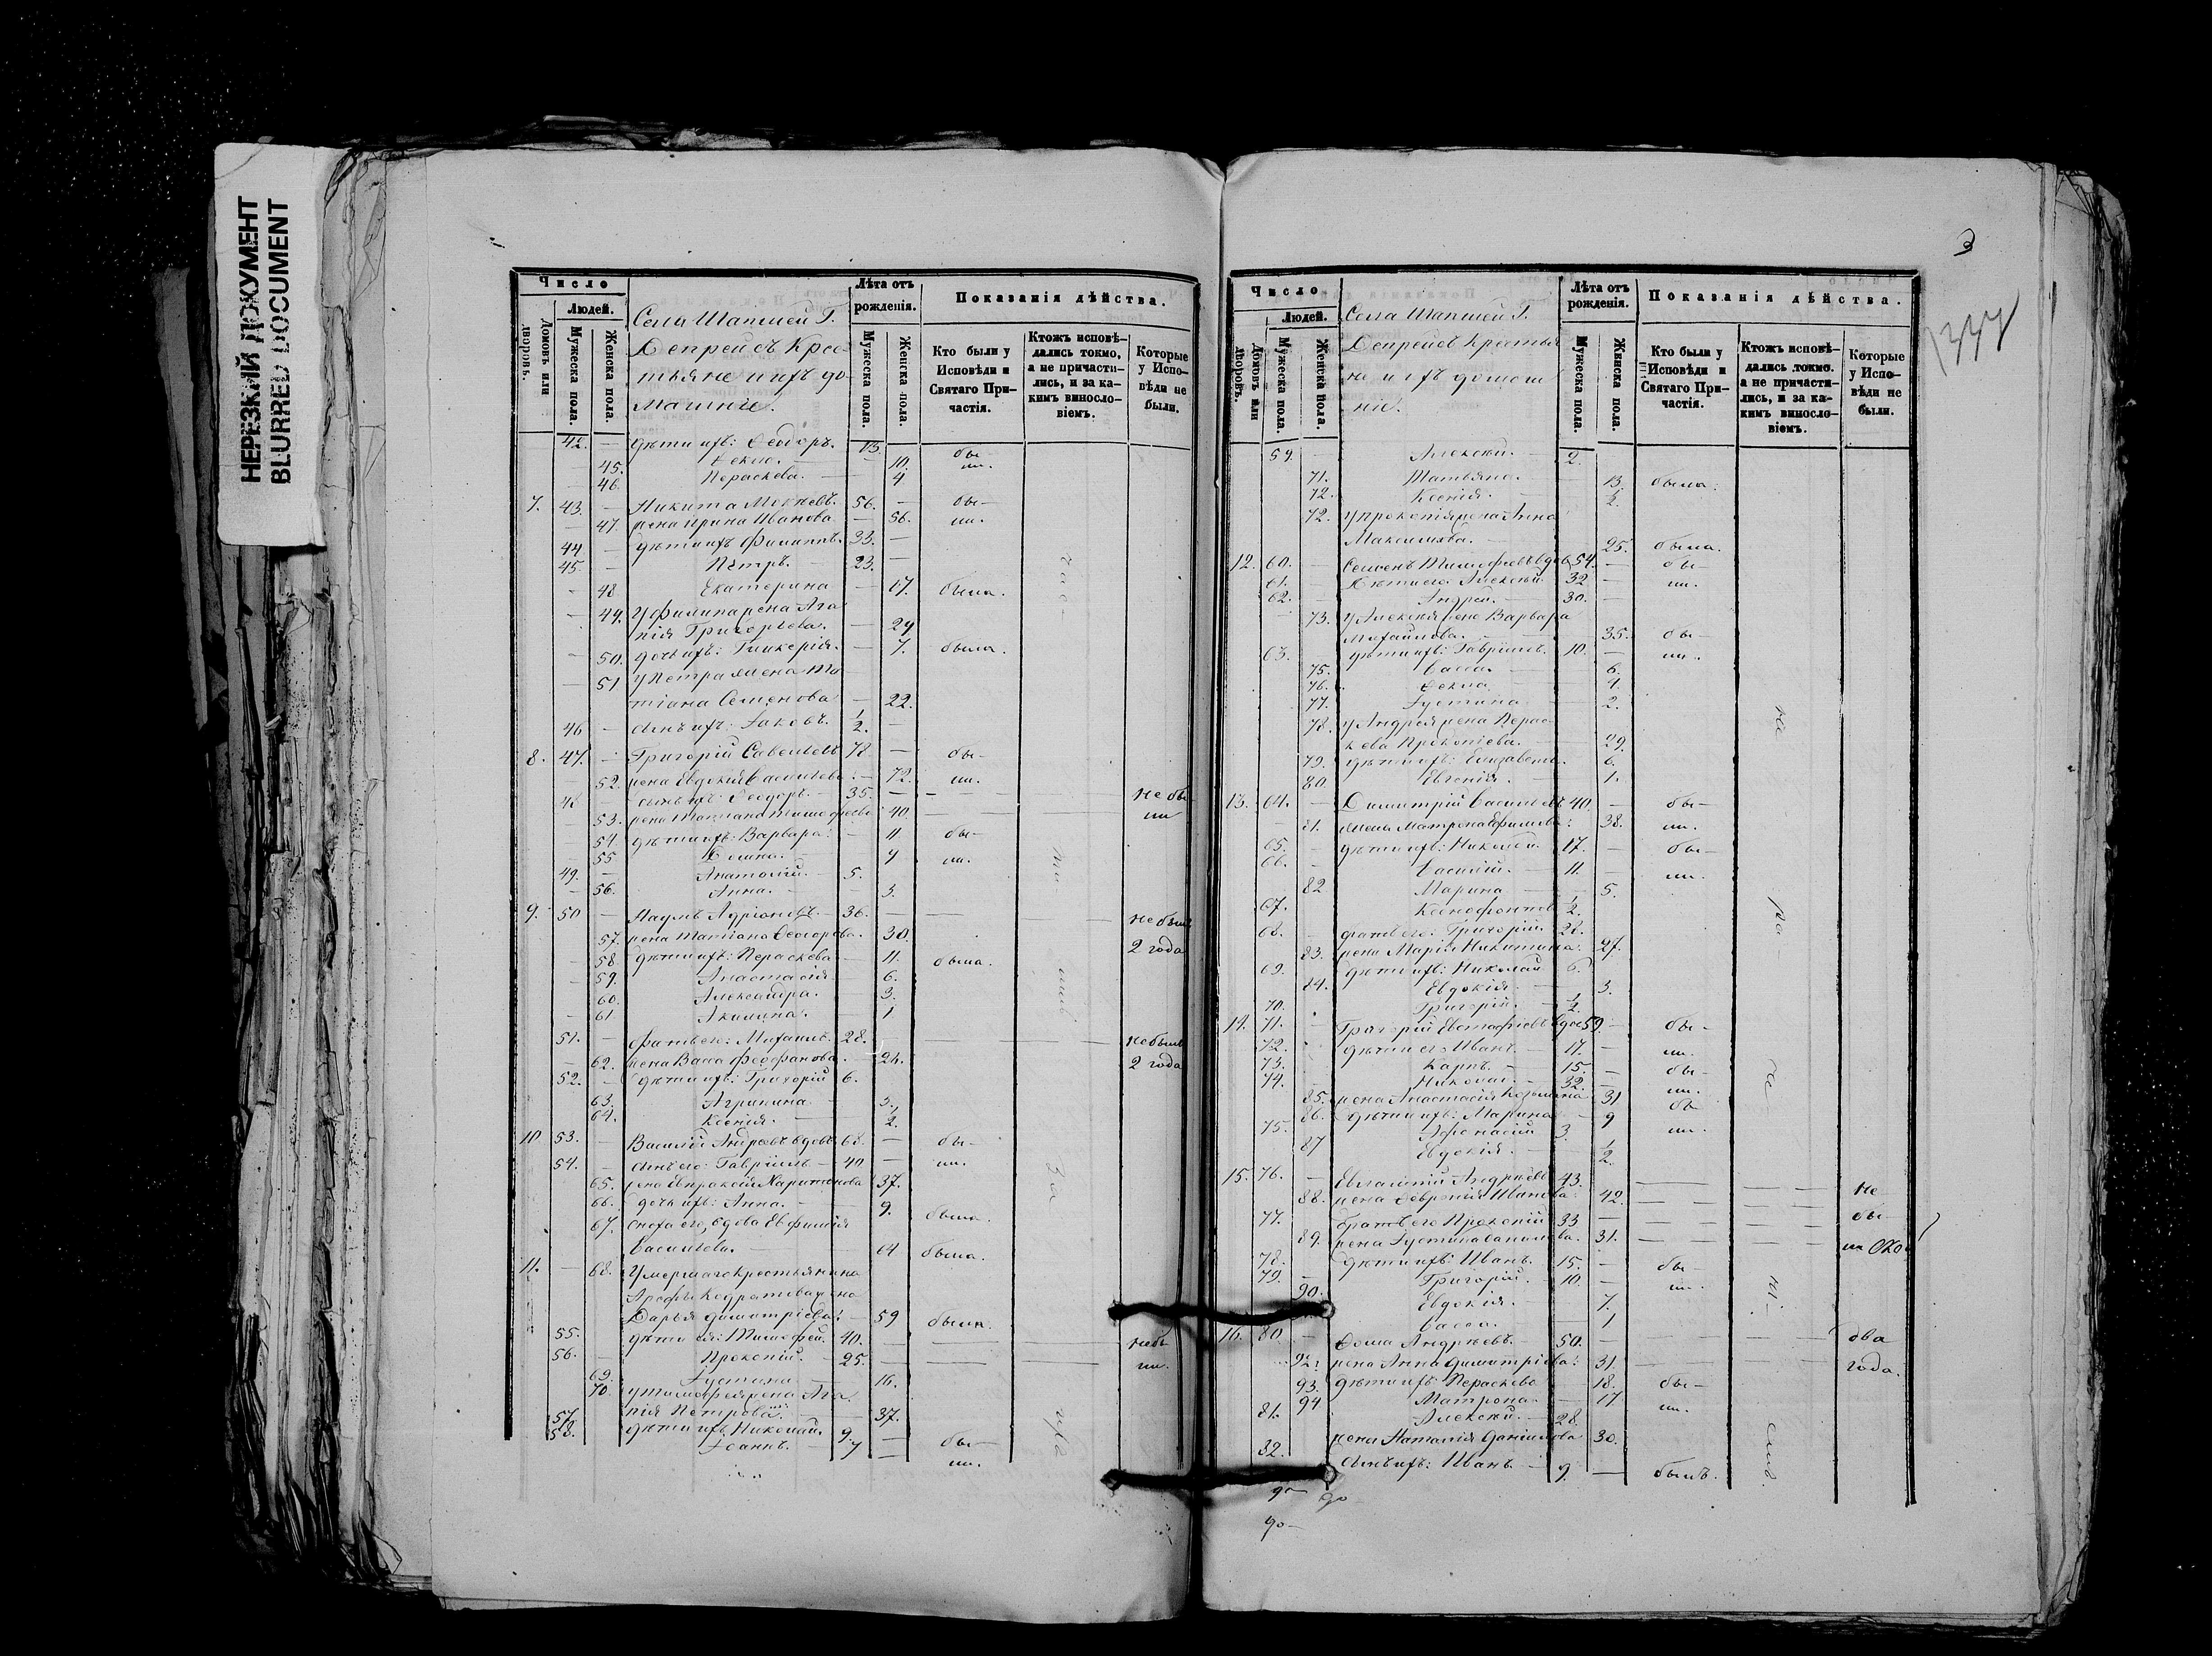 НЕРЕЗКИЙ ДОКУМЕНТ
BLURRED DOCUMENT
Число
Людей.
Домовъ или дворовъ.
Мужеска пола.
Женска пола.
Села Шапшей Г.
Депрейсъ Крес-
тьяне и ихъ до-
машніе.
Лѣта отъ рожденія.
Мужеска пола.
Женска пола.
Показанія дѣйства.
Кто были у Исповѣди и Святаго Причастія.
Ктожъ исповѣдались токмо, а не причастились, и за какимъ винословіемъ.
Которые у Исповѣди не были.
42. — дѣти ихъ: Ѳеодоръ. 13. бы-
45. Ѳекла. — 10. ли.
46. Параскева. — 4
7. 43. — Никита 56. — бы-
47. жена Ирина Иванова — 56. ли.
44. — дѣти ихъ Филиппъ. 33. —
45. — Петръ. 23. —
48 Екатерина — 17. была.
49. У Филипа жена Ага
пія Григорьева. — 29
50. дочь ихъ: Гликерія. — 7. была.
51 у Петра жена Та
тіана Семенова — 22.
46 — сынъ ихъ: Іаковъ. 1/2. —
8. 47. — Григорій Савельевъ 78 — бы-
52. жена Евдокія Васильева — 72. ли.
48 — сынъ ихъ Ѳеодоръ — 35. — Не бы-
53. жена Татіана Тимофеева 40. ли
54. дѣти ихъ: Варвара. — 11. бы-
55 Домна. — 9 ли.
49. — Анатолій. — 5.
56. Анна. — 3.
9. 50 — Наумъ Адріановъ. 36. — Не были
57. жена Татіана Ѳеодорова. 30. 2 года
58 дѣти ихъ: Параскева — 11. была.
59. Анастасія — 6.
60. Александра. — 3.
61 Акилина. — 1
51. — братъ его: Михаилъ. 28. — Не были
62. жена Васса Феофанова. — 24. 2 года
52. — дѣти ихъ: Григорій 6.
63. Агрипина — 3.
64. Ксенія. — 1/2.
10 53. — Василій Андреевъ вдовъ 68. — бы-
54. — сынъ его: Гавріилъ — 40 — ли.
65. жена Евпраксія Харитонова 37.
66. дочь ихъ: Анна. — 9.
67. Сноха его, вдова Евфимія была.
Васильева. — 64 была.
11. — 68. Умершаго крестьянина
Дарья Димитріева — 59 была.
55. дѣти ея: Тимофей. 40. — Не бы-
56. — Прокопій. — 25. — ли.
69. Іустина — 16.
70. у Тимофея жена Ага
пія Петрова. — 37.
57. дѣти ихъ Николай. 9. — бы-
58. Іоаннъ. — 7 — ли.
3
1344
Число
Людей.
Домовъ или дворовъ.
Мужеска пола.
Женска пола.
Села Шапшей Г.
Депрейсъ Крестья
не и ихъ домаш
ніе.
Лѣта отъ рожденія.
Мужеска пола.
Женска пола.
Показанія дѣйства.
Кто были у Исповѣди и Святаго Причастія.
Ктожъ исповѣдались токмо, а не причастились, и за какимъ винословіемъ.
Которые у Исповѣди не были.
59. — Алексѣй. — 2.
71. Татьяна. — 13. была.
72. Ксенія. — 1/2.
72. у Прокопія жена Анна
Максимова. — 25. была.
12. 60. — Семенъ Тимофеевъ вдов. 54. — бы-
61. Дѣти его: Алексѣй 32 — ли.
62. — Андрей. — 30. —
73. у Алексѣя жена Варвара
Михайлова. — 35. бы-
63. дѣти ихъ: Гавріилъ 10. — ли.
75. Васса. — 6.
76. Ѳекла. — 4.
77. Іустина — 2.
78. у Андрея жена Парас-
кева Прокопіева. — 29.
79. дѣти ихъ: Елизавета. 6.
80. Евгенія. — 1.
13. 64. — Димитрій Васильевъ 40. — бы-
81. жена Матрона Ефимова. 38. ли.
65. дѣти ихъ: Николай. 17. — бы-
66. Василій. — 11. ли.
82 Марина — 5.
67. Ксенофонтъ 1/2.
68. братъ его: Григорій 28.
83. жена Марія Никитина. 27.
69. дѣти ихъ: Николай 6.
84. Евдокія. — 3.
70. Григорій. — 1/2.
14. 71. — Григорій Евстафіевъ вдов. 59. — бы-
72. дѣти его Иванъ. — 17. — ли.
73. Карпъ. — 15. — бы-
74. Николай. — 32. — ли.
85. жена Анастасія Козьмина 31 бы
86. дѣти ихъ: Марина — 9 ли.
75. Афанасій 3.
87 Евдокія. — 1/2.
15. 76. — Евлампій Андреевъ 43. Не
88. жена Февронія Иванова. 42. бы-
77. братъ его Прокопій 33 —
89. жена Іустина 31. ли
78. дѣти ихъ: Иванъ. 15. — бы-
79. Григорій. — 10. — ли.
90. Евдокія. — 7.
Васса. — 1
16. 80 — Ѳома Андреевъ. 50. — два
92. жена Анна Димитріева: 31. года.
93. дѣти ихъ: Параскева — 18. бы-
94 Матрона. — 17. ли.
81. Алексѣй. — 28.
жена Наталія Даніилова 30.
82. сынъ ихъ: Иванъ. — 9. — былъ.
90— 90
90—